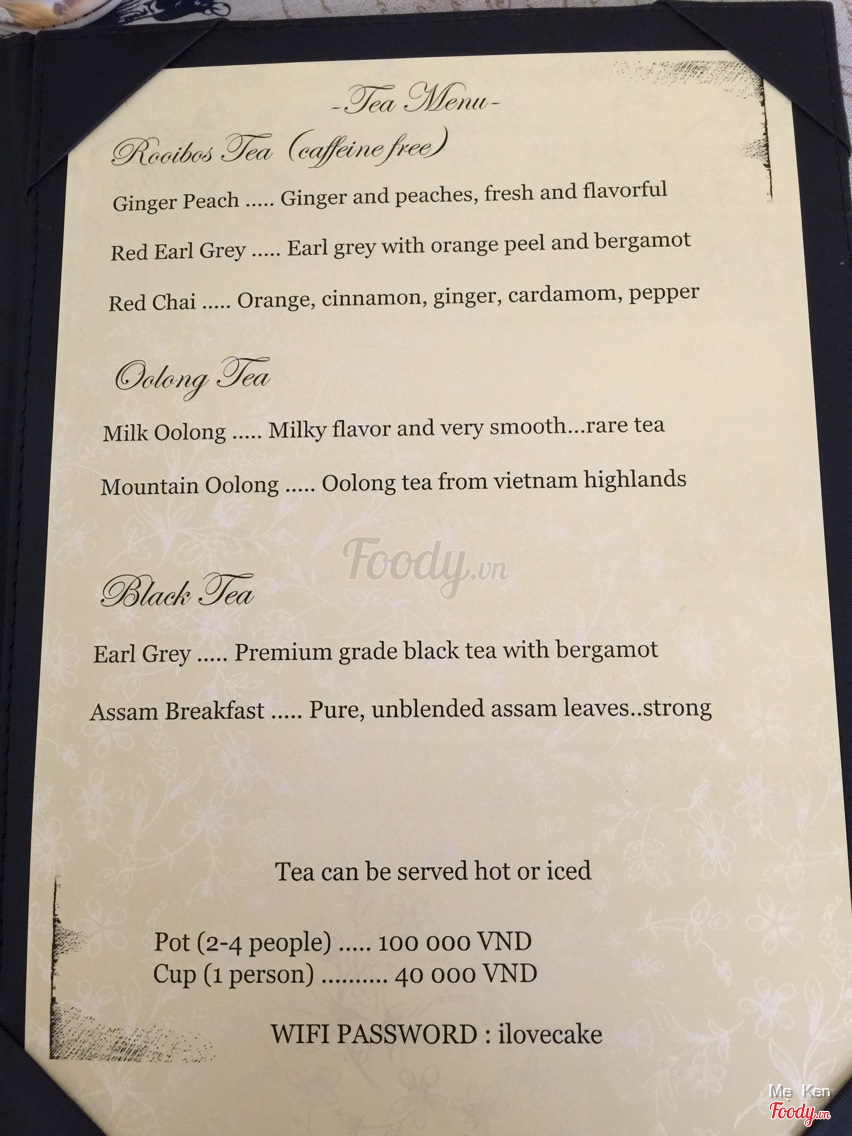 -Tea Menu-
Rooibos Tea (caffeine free)
Ginger Peach ..... Ginger and peaches, fresh and flavorful
Red Earl Grey ..... Earl grey with orange peel and bergamot
Red Chai ..... Orange, cinnamon, ginger, cardamom, pepper
Oolong Tea
Milk Oolong ..... Milky flavor and very smooth...rare tea
Mountain Oolong ..... Oolong tea from vietnam highlands
Foody.vn
Black Tea
Earl Grey ..... Premium grade black tea with bergamot
Assam Breakfast ..... Pure, unblended assam leaves..strong
Tea can be served hot or iced
Pot (2-4 people) ..... 100 000 VND
Cup (1 person) .......... 40 000 VND
WIFI PASSWORD : ilovecake
Mẹ Ken
Foody.vn